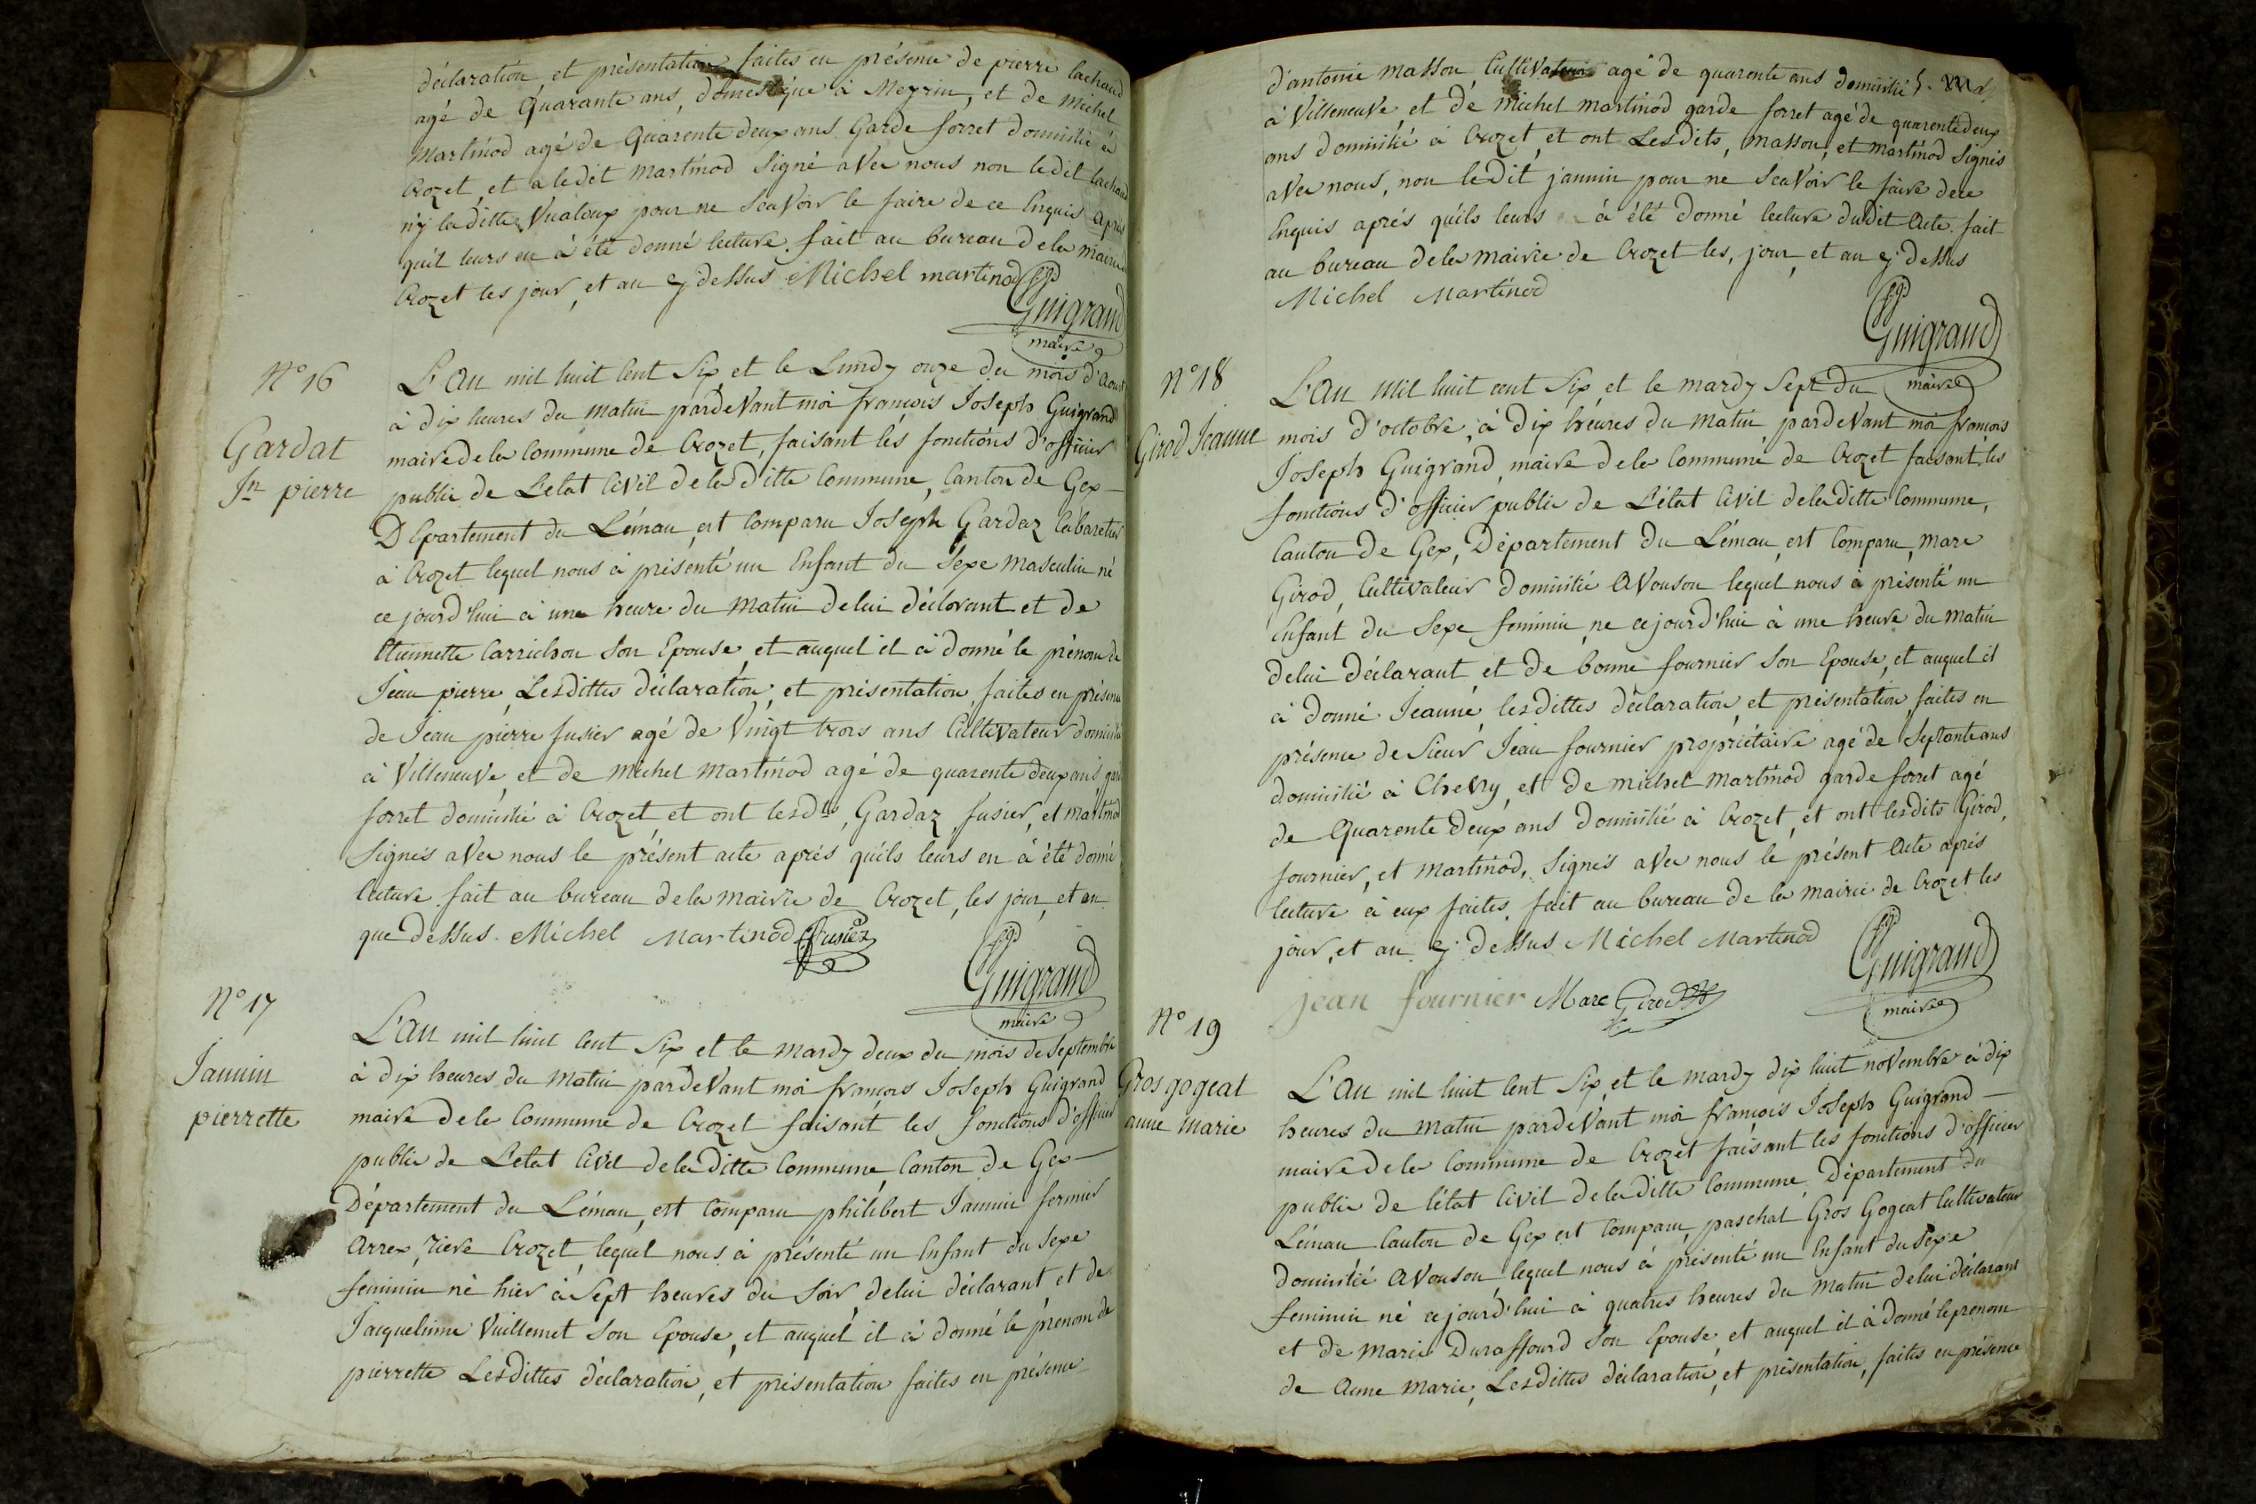 déclaration, et présentation faites en présence de pierre lachaud
agé de Quarante ans, domestique à Meyrin, et de Michel
Martinod agé de Quarente deux ans Garde forret domicilié à
Crozet, et a ledit Martinod Signé avec nous non ledit lachaud
n'y laditte Vualoux pour ne Scavoir le faire de ce Enquis après
quil leurs en à été donné lecture. fait au bureau dela mairie
Crozet les jour, et an cy dessus Michel martinod
Guigrand
maire
N° 16
Gardat
Jn pierre
L'An mil huit Cent Six et le Lundy onze du mois d'Aoust
à dix heures du matin pardevant moi francois Joseph Guigrand
maire dela Commune de Crozet, faisant les fonctions d'officier
public de L'etat Civil dela ditte Commune, Canton de Gex
Département du Léman, est Comparu Joseph Gardaz Cabaretier
à Crozet lequel nous à présenté un Enfant du Sexe Masculin né
ce jourd'hui à une heure du Matin delui déclarant et de
Etiennette Carrichon Son Epouse, et auquel il à donné le prénom de
Jean pierre, Lesdittes déclaration, et présentation, faites en présence
de Jean pierre fusier agé de Vingt trois ans Cultivateur domicilié
à Villeneuve, et de Michel Martinod agé de quarente deux ans garde
forret domicilié à Crozet, et ont lesdts, Gardaz, fusier, et Martinod
Signés avec nous le présent acte aprés qu'ils leurs en à été donné
lecture. fait au bureau dela Mairie de Crozet, les jour, et an
que dessus. Michel Martinod fusier
Guigrand
maire
N° 17
Jannin
pierrette
L'An mil huit Cent Six et le mardy deux du mois de Septembre
à dix heures du Matin pardevant moi francois Joseph Guigrand
maire dela Commune de Crozet faisant les fonctions d'officier
public de L'etat Civil dela ditte Commune, Canton de Gex
Département du Léman, est Comparu philibert Jannin fermier
Arrex, riere Crozet, lequel nous à présenté un Enfant du sexe
feminin né hier à Sept heures du Soir delui déclarant, et de
Jacquelinne Vuillemet Son Epouse, et auquel il à donné le prénom de
pierrette Lesdittes déclaration, et présentation faites en présence
d'antoine Masson, Cultivateur agé de quarente ans domicilié
à Villeneuve, et de Michel martinod garde forret agé de quarente deux
ans domicilié à Crozet, et ont Lesdits, Masson, et martinod Signés
avec nous, non ledit jannin pour ne Scavoir le faire dece
Enquis aprés qu'ils leurs à été donné lecture dudit Acte. fait
au bureau dela mairie de Crozet les, jour, et an cy dessus
Michel Martinod
Guigrand
maire
N° 18
Girod Jeanne
L'An Mil huit cent Six, et le mardy Sept du
mois d'octobre, à dix heures du Matin pardevant moi francois
Joseph Guigrand, maire dela Commune de Crozet faisant les
fonctions d'officier public de L'état Civil dela ditte Commune,
Canton de Gex, Département du Léman, est Comparu, Marc
Girod, Cultivateur domicilié Avouson lequel nous à présenté un
Enfant du Sexe feminin, ne cejourd'hui à une heure du Matin
delui déclarant, et de bonne fournier Son Epouse, et auquel il
à donné Jeanne, lesdittes déclaration, et présentation, faites en
présence de Sieur Jean fournier propriétaire agé de Septante ans
domicilié à Chevry, et de michel Martinod garde forret agé
de Quarente deux ans domicilié à Crozet, et ont lesdits Girod,
fournier, et Martinod, Signés avec nous le présent Acte aprés
lecture à eux faites. fait au bureau de la Mairie de Crozet les
jour, et an cy dessus Michel Martinod
Guigrand
maire
jean fournier Marc Girod
N° 19
Gros gogeat
anne marie
L'An mil huit Cent Six, et le mardy dix huit novembre à dix
heures du Matin pardevant moi francois Joseph Guigrand
maire dela Commune de Crozet faisant les fonctions d'officier
public de l'état Civil dela ditte Commune, Département du
Léman Canton de Gex est Comparu, paschal Gros Gogeat Cultivateur
domicilié Avouson, lequel nous à présenté un Enfant du sexe
feminin né cejourd'hui à quatres heures du Matin delui déclarant
et de Marie Duraffourd Son Epouse, et auquel il à donné leprenom
de Anne Marie, Lesdittes déclaration, et présentation, faites en présence